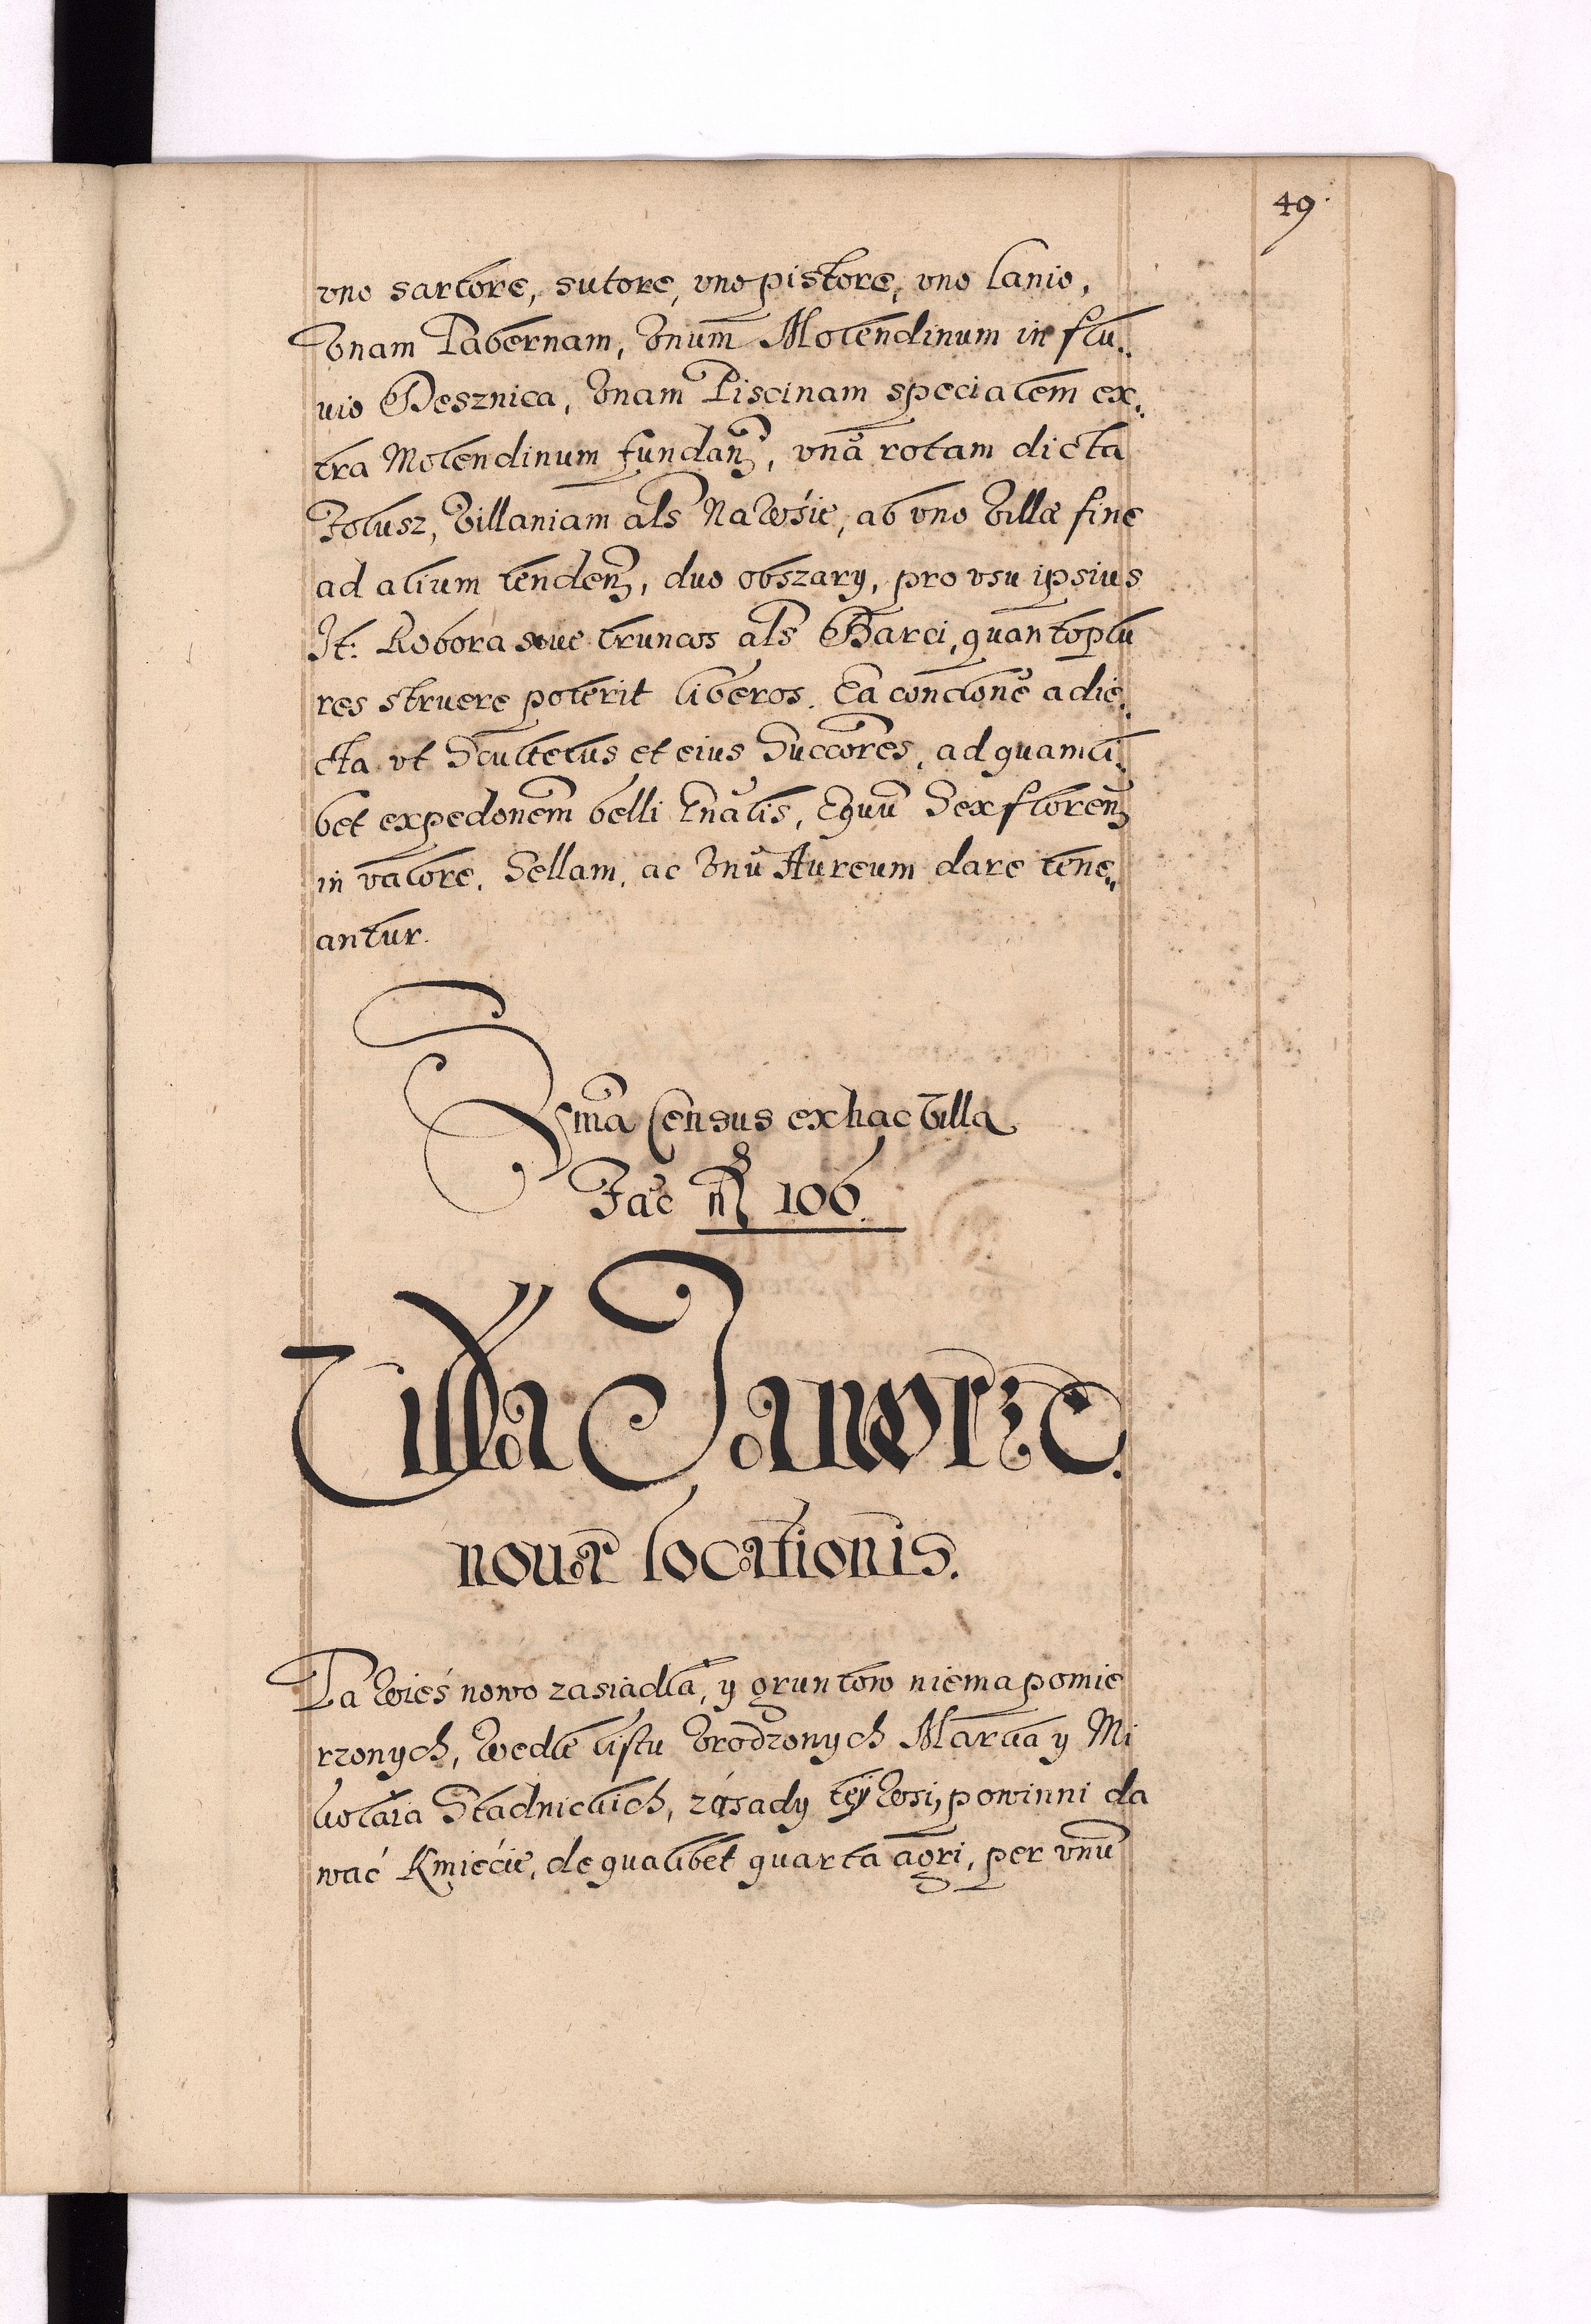 49.
vno sartore, sutore, vno pistore, vno Lanio,
Vnam Tabernam, Vnum Molendinum in flu„
uio Desznica, Vnam Piscinam specialem ex„
tra Molendinum fundan̄, vnā rotam dicta
Folusz, Villaniam als Na Wśie, ab vno Villæ fine
ad alium tenden̄, duo obszary, pro vsu ipsius
It: Robora siue truncos als Barci, quantoplu
res struere poterit liberos. Ea concione adie„
cta vt Scultetus et eius Succores, ad quamli„
bet expedonem belli gñalis, Equū Sex floren̄
in valore, Sellam, ac Vnū Aureum dare tene„
antur.
Sma Census ex hac Villa
Fac 106.
Villa Jaworze.
nouæ locationis.
Ta Wieś nowo zasiadła, y gruntow niema pomie
rzonych, Wedle listu Vrodzonych Marcia y Mi
kolaia Stadnickich, zásady teÿ Wsi, powinni da
wać Kmiećie, de qualibet quarta agri, per vnū